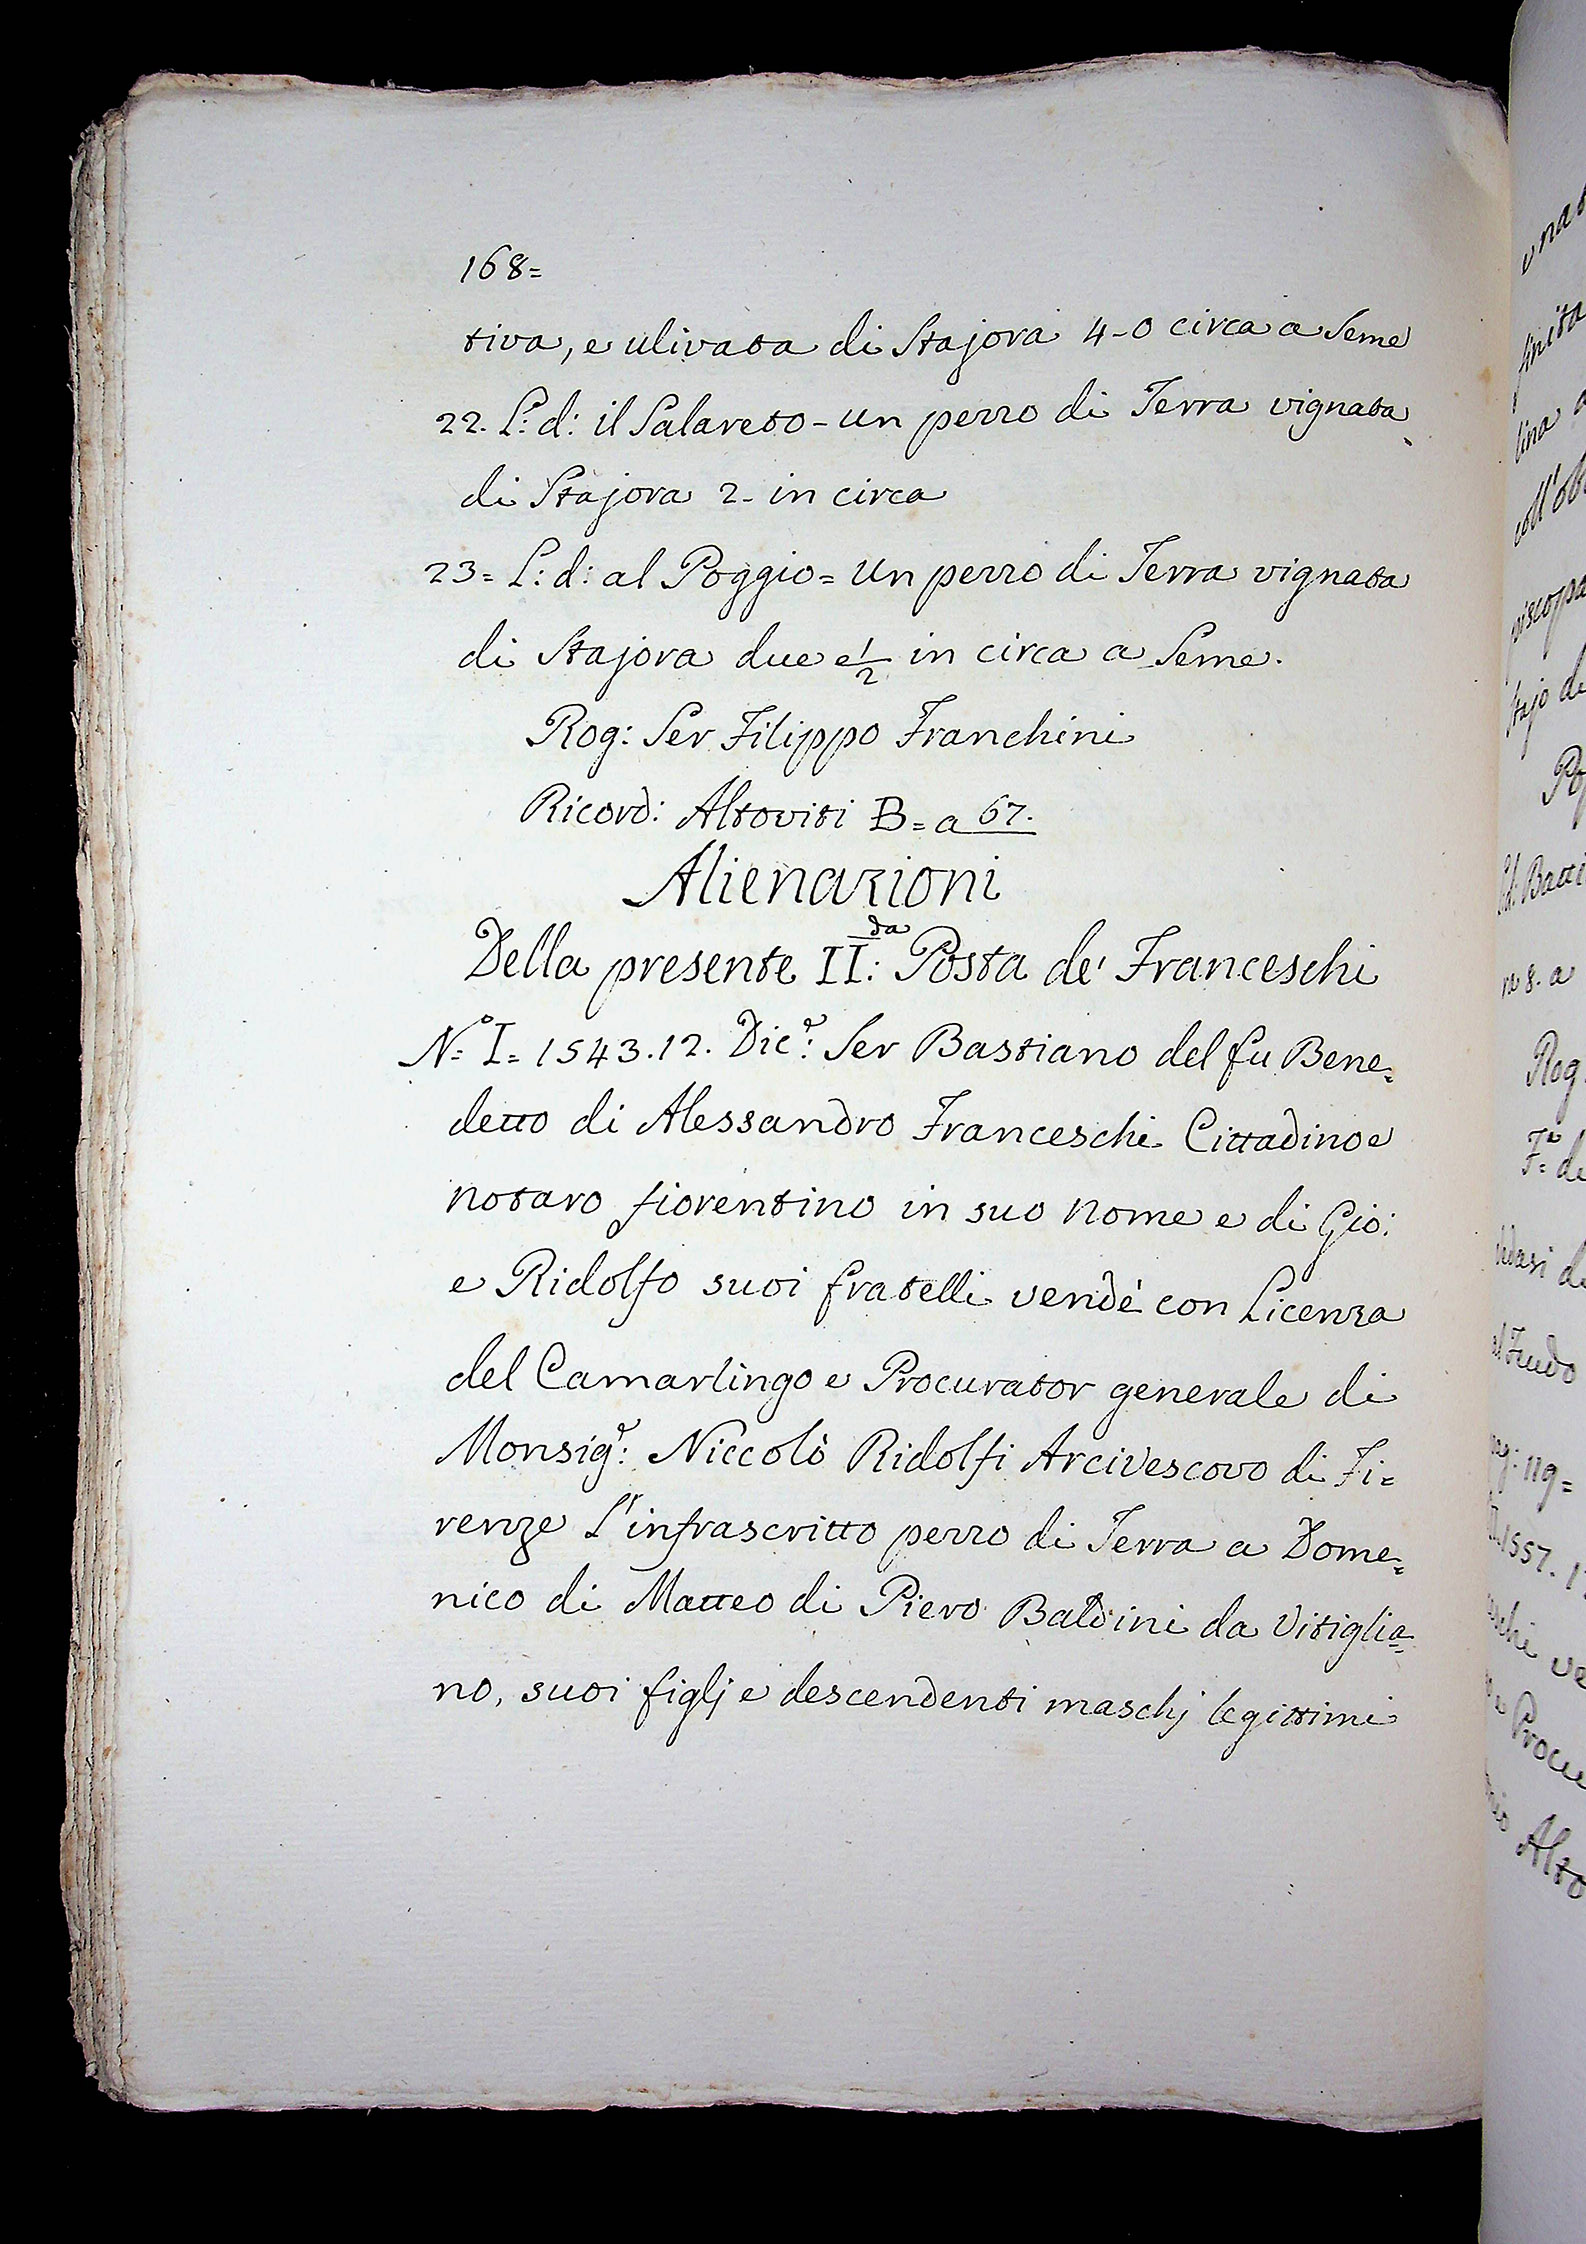 168=
tiva, e ulivata di Stajora 4-0 circa a Seme
22. L: d: il Salareto - un pezzo di Terra vignata
di Stajora 2- in circa
23= L: d: al Poggio = Un pezzo di Terra vignata
di Stajora due e 1/2 in circa a Seme.
Rog: Ser Filippo Franchini
Ricord: Altoviti B= a 67.
Alienazioni
Della presente II:da Posta de' Franceschi
N.o I= 1543. 12. Dic.e: Ser Bastiano del fu Bene=
detto di Alessandro Franceschi Cittadino e
notaro fiorentino in suo nome e di Gio:
e Ridolfo suoi fratelli vendè con Licenza
del Camarlingo e Procurator generale di
Monsig.e: Niccolò Ridolfi Arcivescovo di Fi=
renze l'infrascritto pezzo di Terra a Dome=
nico di Matteo di Piero Baldini da Vitiglia=
no, suoi figlj e descendenti maschj legittimi
finita
coll'ob
Rog
al Feudo
1557.
Procu
Alto